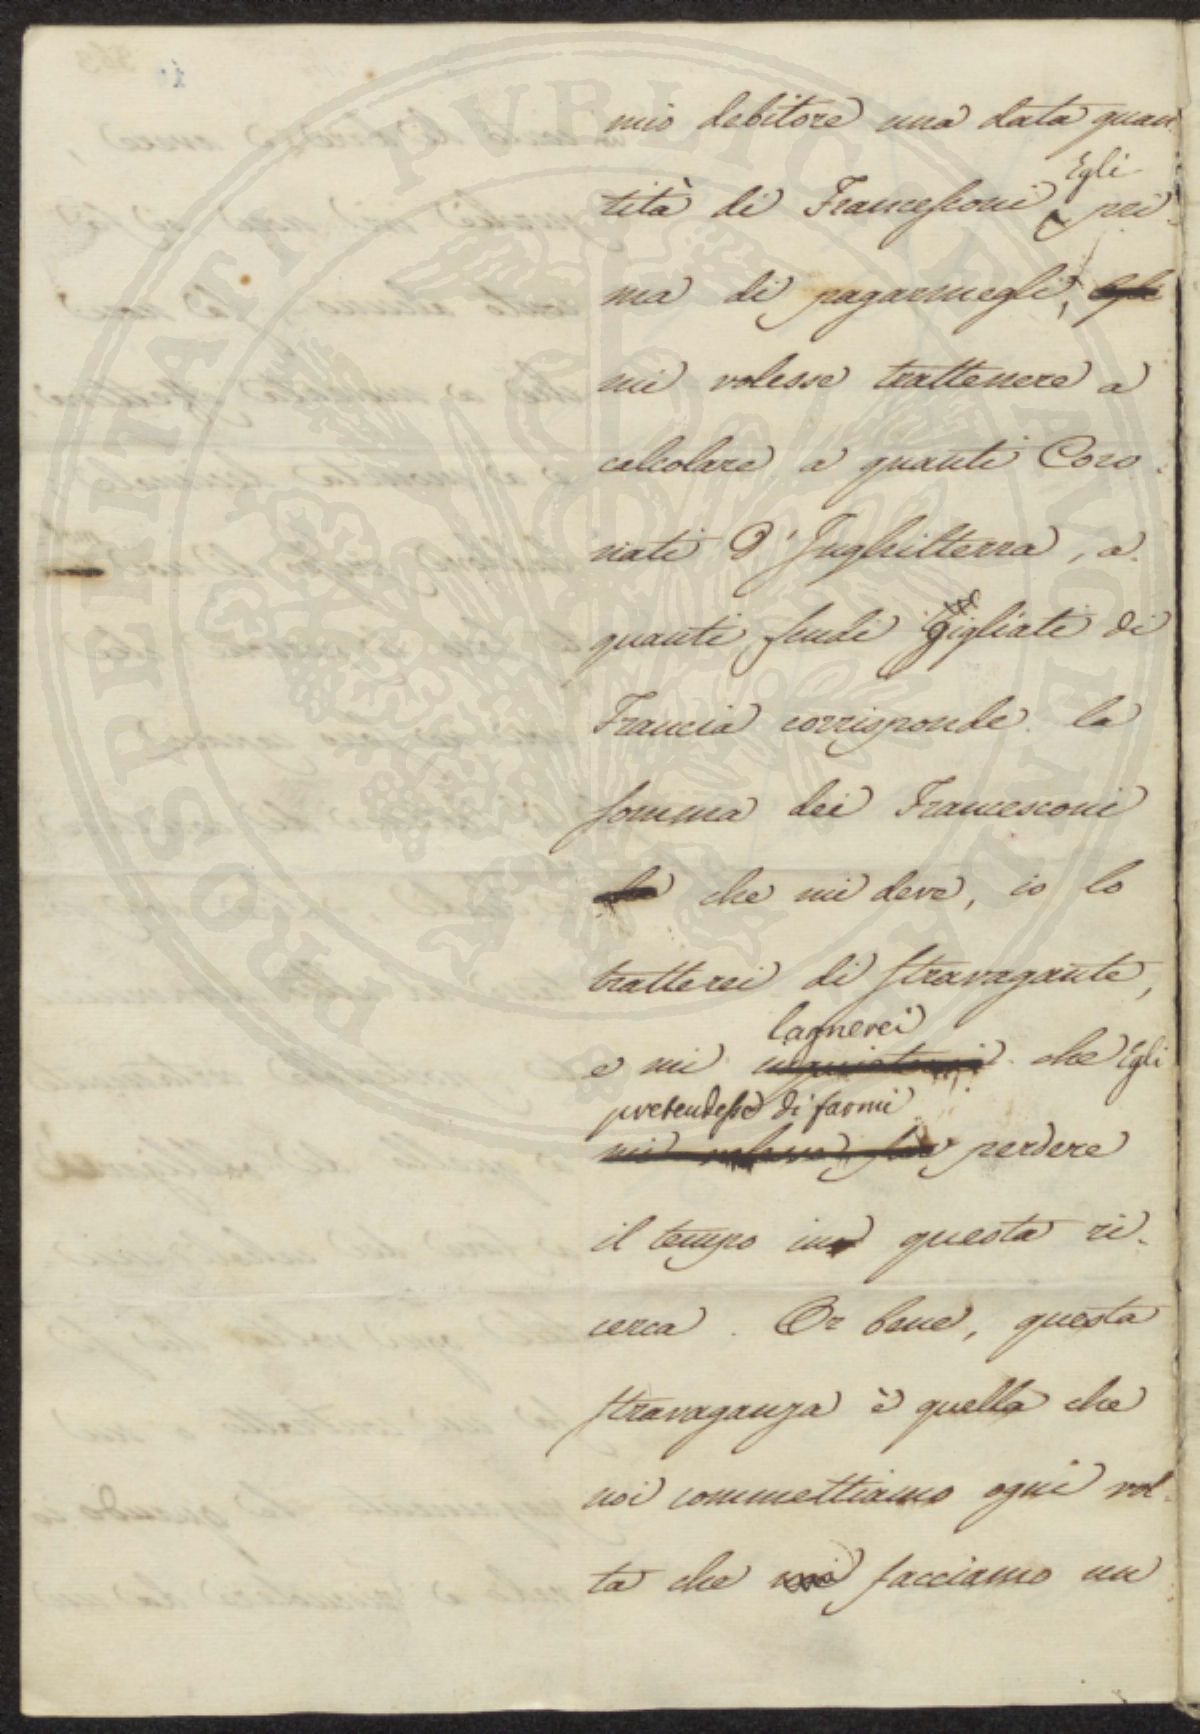 mio debitore una data quan
tità di Francesconi Egli pri-
ma di pagarmegli, egli
mi volesse trattenere a
calcolare a quanti Coro-
nati d'Inghilterra, a
quanti scudi Gigliati di
Francia corrisponde la
somma dei Francesconi
che mi deve, io lo
tratterei di stravagante,
e mi lagnerei che Egli
pretendesse di farmi
mi voleva far perdere
il tempo in questa ri-
cerca. Or bene, questa
stravaganza è quella che
noi commettiamo ogni vol-
ta che noi facciamo un
PROSPERITATI PUBLICAE AUGENDAE